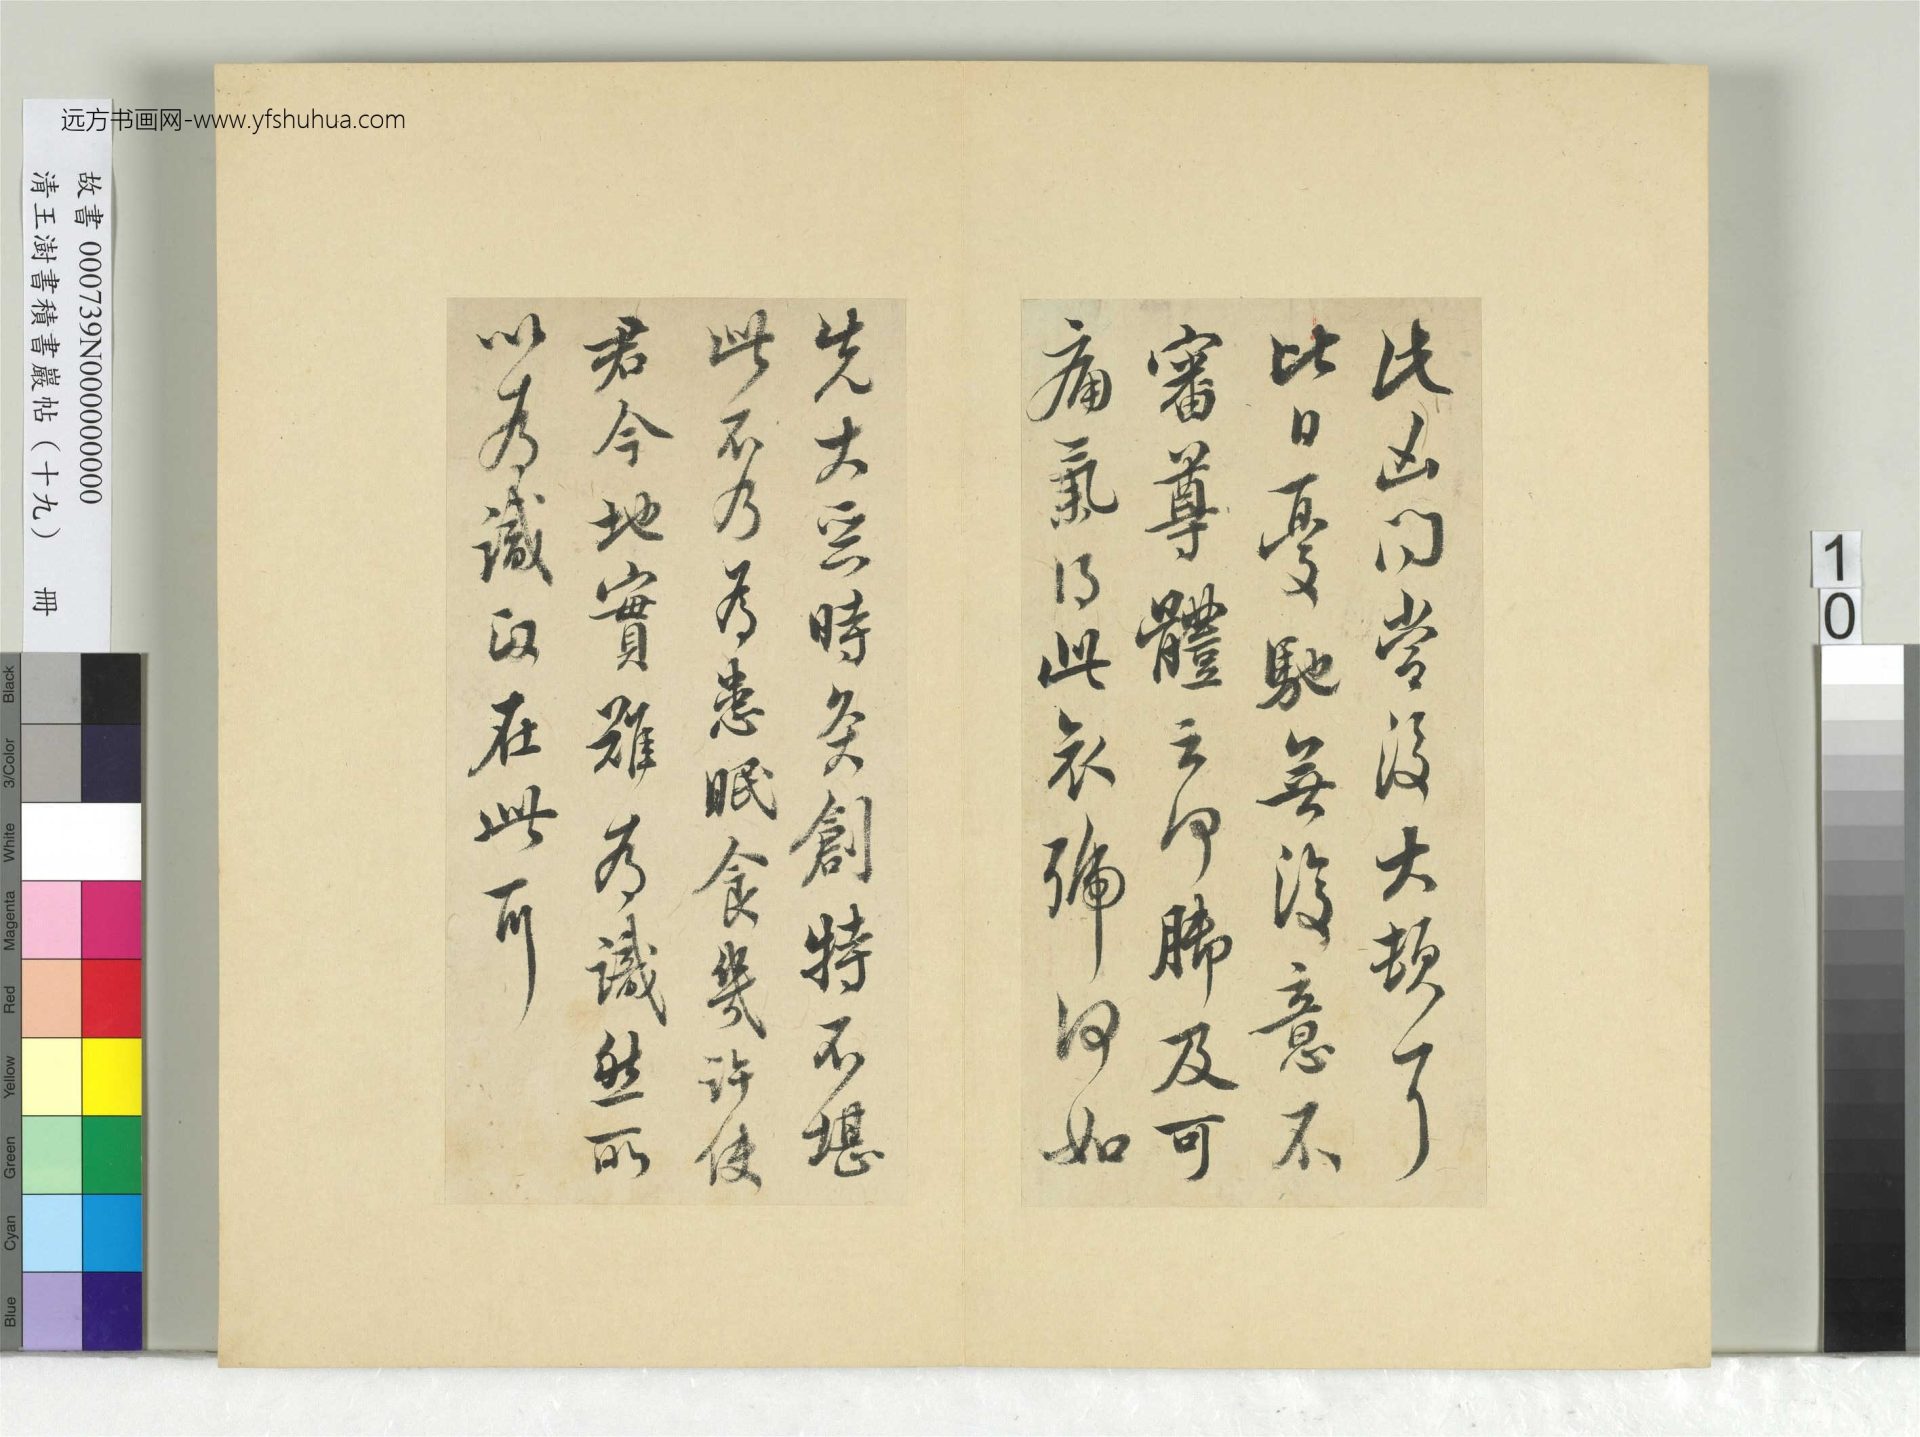 远方书画网-www.yfshuhua.com
故書 000739N000000000
清王澍書積書巖帖（十九） 冊
此凶問當復大頓耳
比日憂馳無復意不
審尊體云何及可
痛氣得此號何如
先大惡時灸創特不堪
此不乃為患眠食幾許使
君今地實難為識然所
以為識政在此耳
10
Black
3/Color
White
Magenta
Red
Yellow
Green
Cyan
Blue